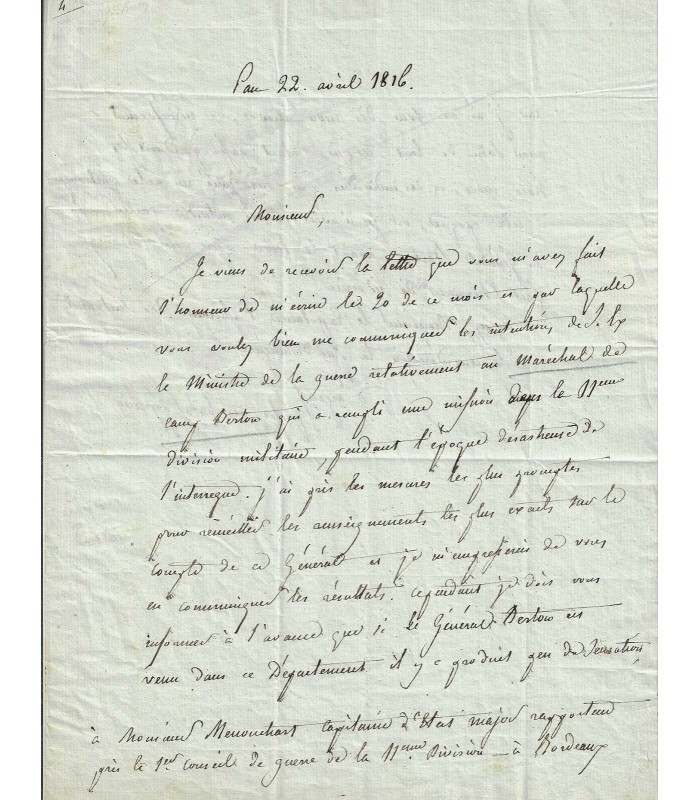 4
Pau 22. avril 1816.
Monsieur,
Je viens de recevoir la lettre que vous m'avez fait
l'honneur de m'écrire le 20 de ce mois et par laquelle
vous voulez bien me communiquer les intentions de S. Ex
le Ministre de la guerre relativement au Maréchal de
camp Berton qui a rempli une mission dans la 11eme
division militaire, pendant l'époque désastreuse de
l'interregne. j'ai pris les mesures les plus promptes
pour recueillir les renseignements les plus exacts sur le
compte de ce Général et je m'empresserai de vous
en communiquer les résultats. Cependant je dois vous
informer à l'avance que si le Général Berton est
venu dans ce Département il y a produit peu de sensation,
à Monsieur capitaine d'Etat major rapporteur
près le 1er conseil de guerre de la 11eme Division à Bordeaux